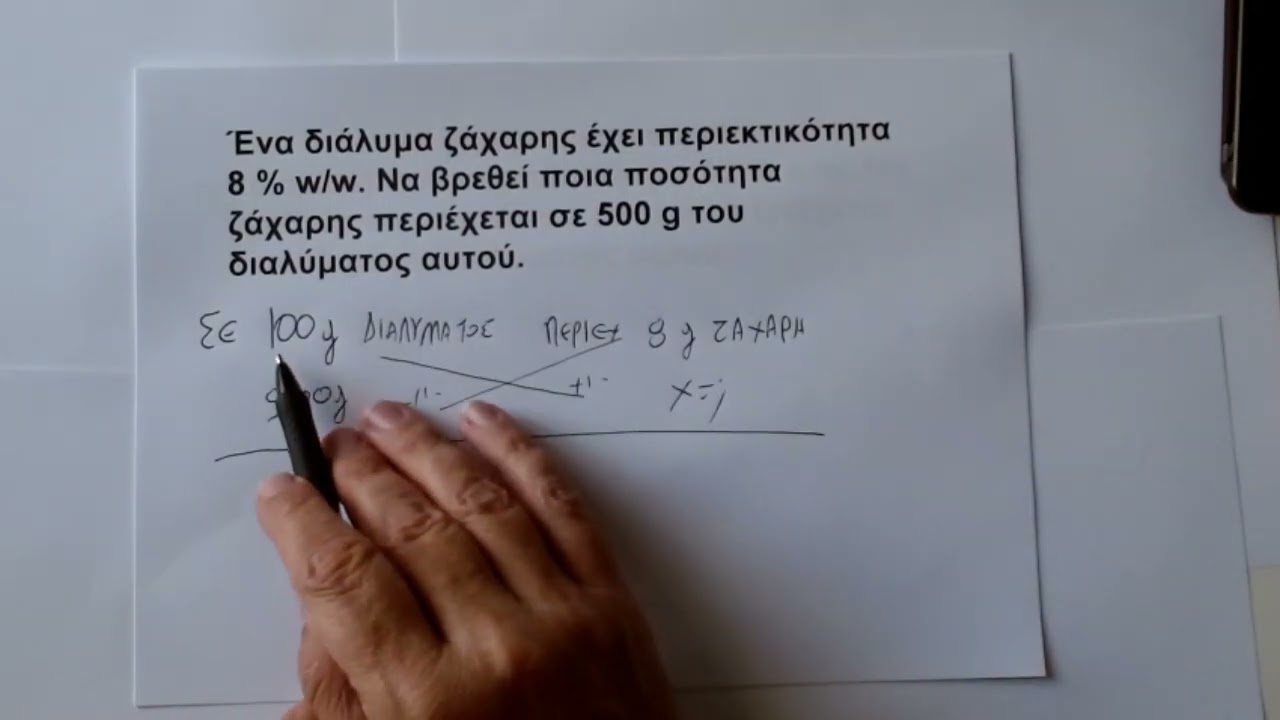 Ένα διάλυμα ζάχαρης έχει περιεκτικότητα
8 % w/w. Να βρεθεί ποια ποσότητα
ζάχαρης περιέχεται σε 500 g του
διαλύματος αυτού.
ΣΕ 100g ΔΙΑΛΥΜΑΤΟΣ ΠΕΡΙΕΧ 8 g ΖΑΧΑΡΗ
-"- -"- x=;